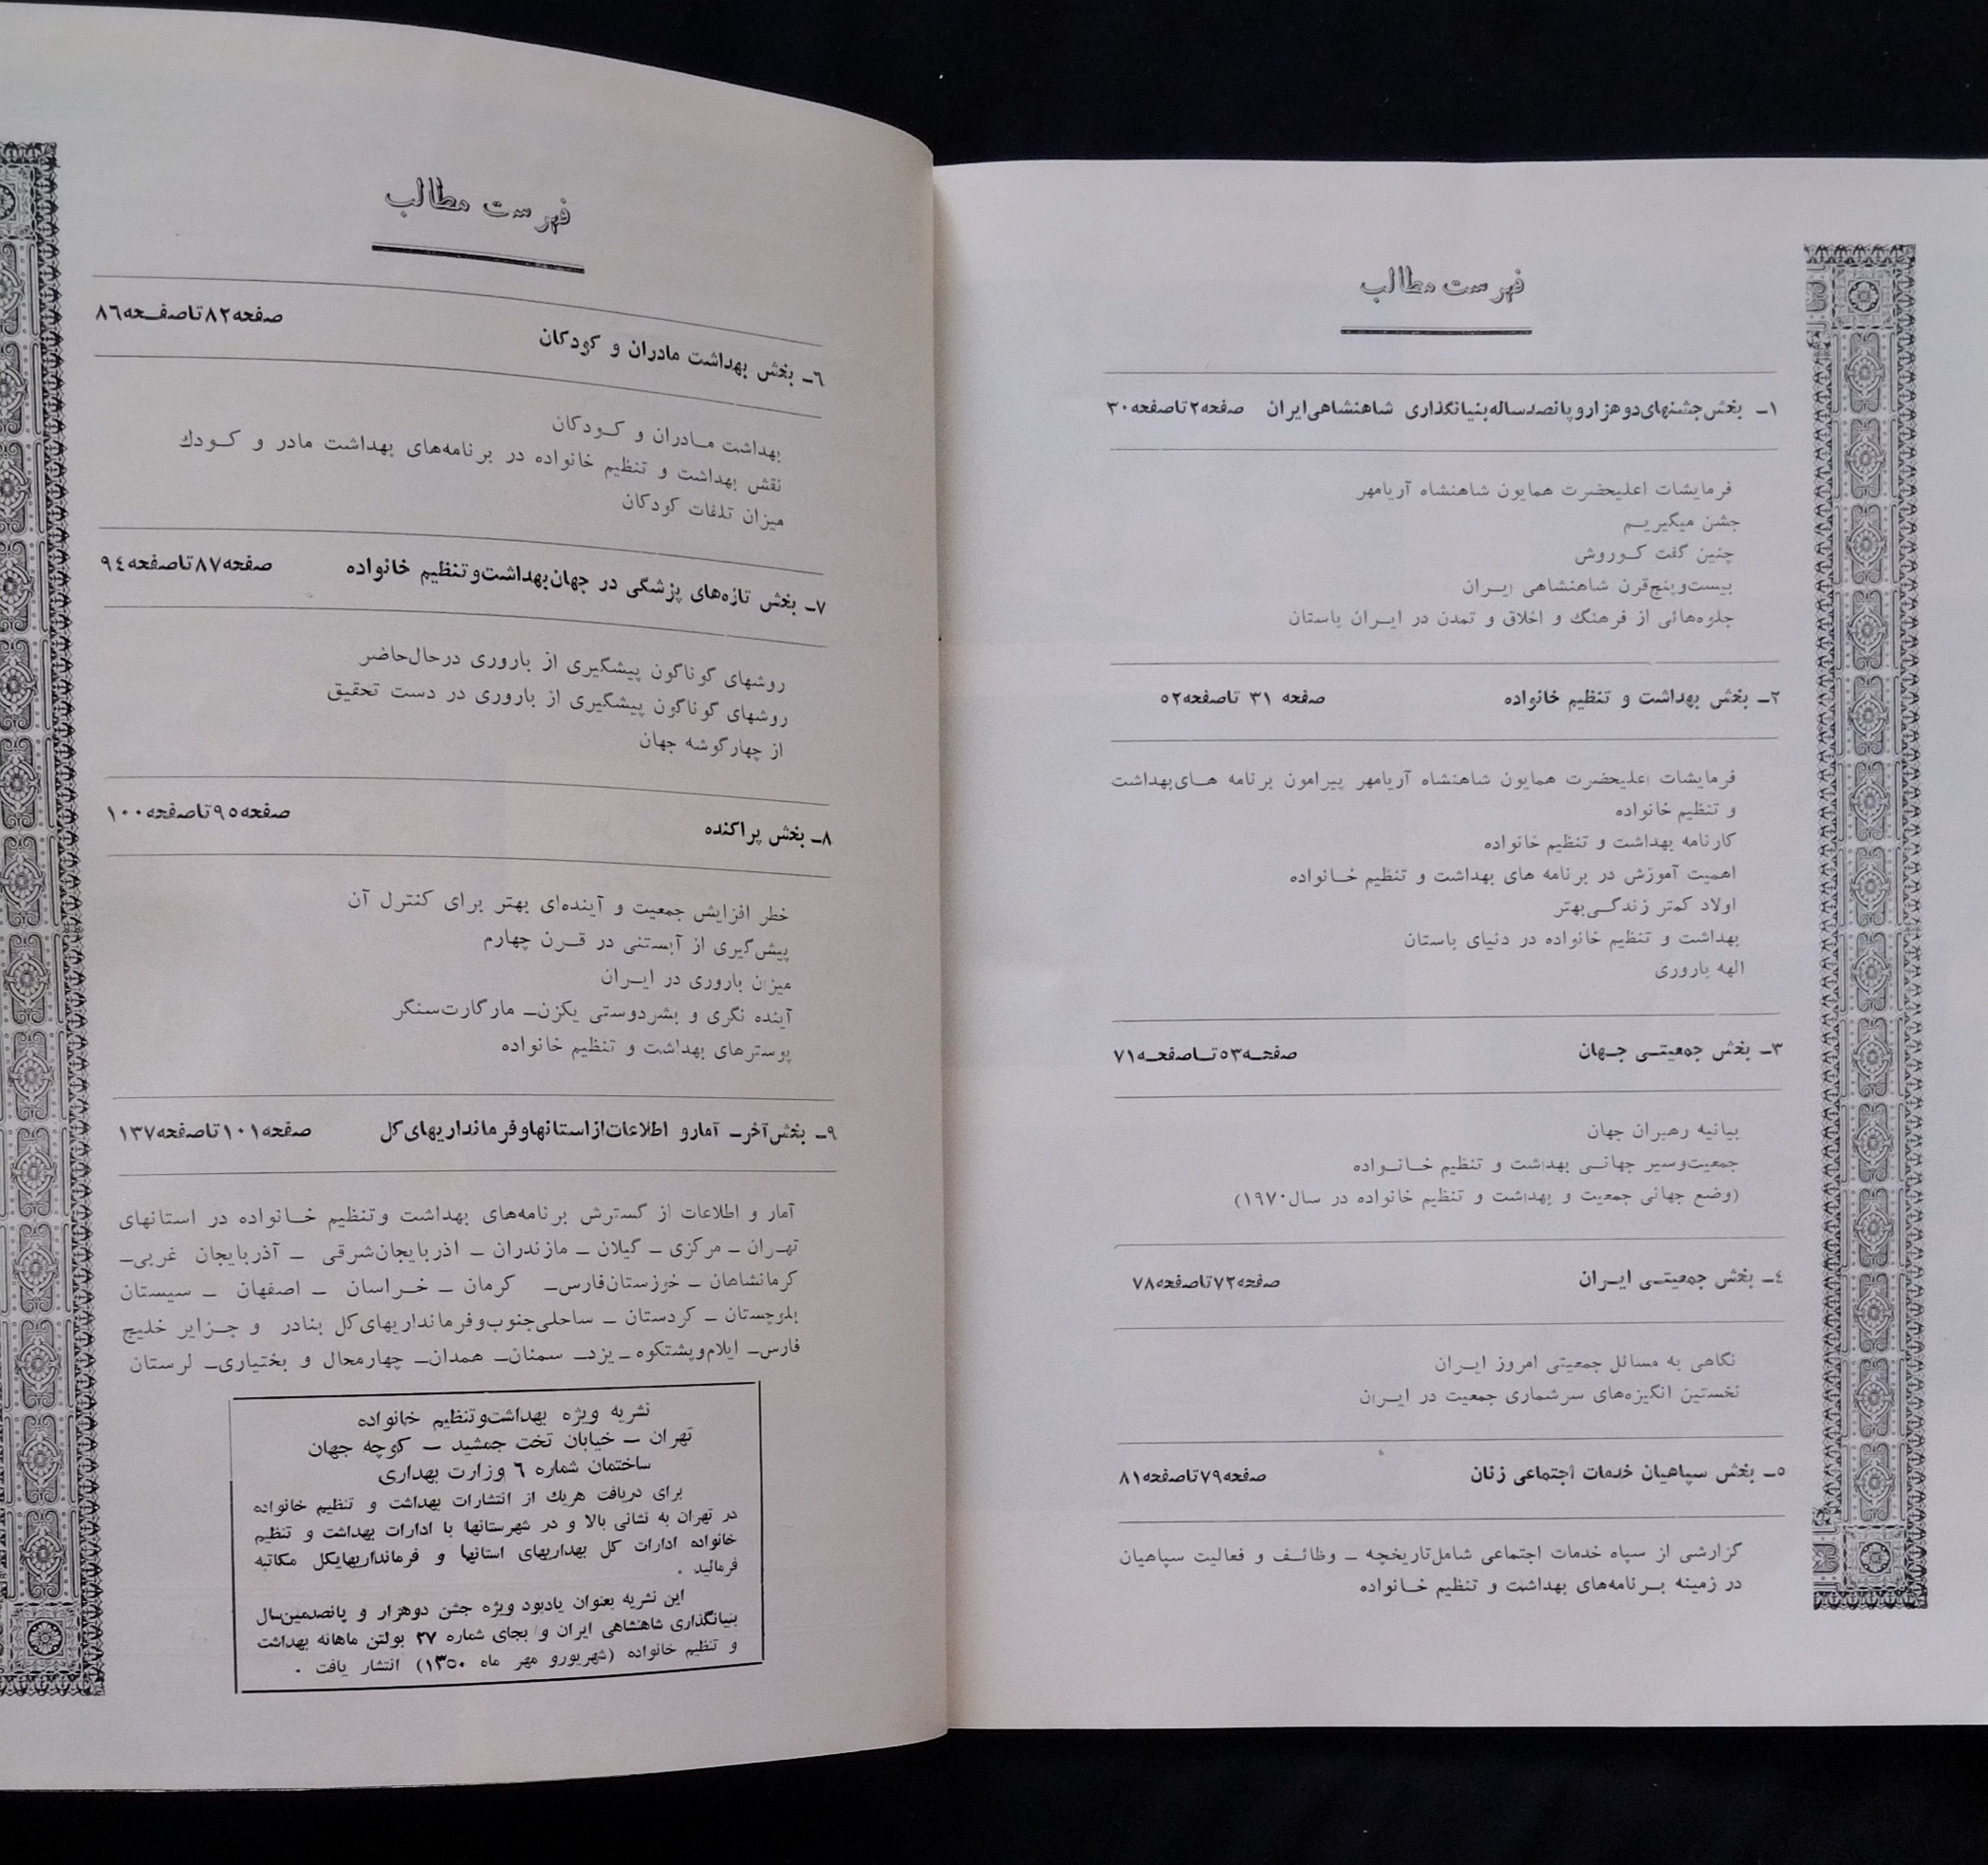 فهرست مطالب
۱ـ بخش جشنهای دوهزار و پانصد ساله بنیانگذاری شاهنشاهی ایران صفحه ۲ تا صفحه ۳۰
فرمایشات اعلیحضرت همایون شاهنشاه آریامهر
جشن میگیریم
چنین گفت کوروش
بیست و پنج قرن شاهنشاهی ایران
جلوه‌هائی از فرهنگ و اخلاق و تمدن در ایران باستان
۲ـ بخش بهداشت و تنظیم خانواده صفحه ۳۱ تا صفحه ۵۲
فرمایشات اعلیحضرت همایون شاهنشاه آریامهر پیرامون برنامه های بهداشت
و تنظیم خانواده
کارنامه بهداشت و تنظیم خانواده
اهمیت آموزش در برنامه های بهداشت و تنظیم خانواده
اولاد کمتر زندگی بهتر
بهداشت و تنظیم خانواده در دنیای باستان
الهه باروری
۳ـ بخش جمعیتی جهان صفحه ۵۳ تا صفحه ۷۱
بیانیه رهبران جهان
جمعیت و سیر جهانی بهداشت و تنظیم خانواده
(وضع جهانی جمعیت و بهداشت و تنظیم خانواده در سال ۱۹۷۰)
۴ـ بخش جمعیتی ایران صفحه ۷۲ تا صفحه ۷۸
نگاهی به مسائل جمعیتی امروز ایران
نخستین انگیزه‌های سرشماری جمعیت در ایران
۵ـ بخش سپاهیان خدمات اجتماعی زنان صفحه ۷۹ تا صفحه ۸۱
گزارشی از سپاه خدمات اجتماعی شامل تاریخچه ـ وظائف و فعالیت سپاهیان
در زمینه برنامه‌های بهداشت و تنظیم خانواده
فهرست مطالب
۶ـ بخش بهداشت مادران و کودکان صفحه ۸۲ تا صفحه ۸۶
بهداشت مادران و کودکان
نقش بهداشت و تنظیم خانواده در برنامه‌های بهداشت مادر و کودك
میزان تلفات کودکان
۷ـ بخش تازه‌های پزشگی در جهان بهداشت و تنظیم خانواده صفحه ۸۷ تا صفحه ۹۴
روشهای گوناگون پیشگیری از باروری در حال حاضر
روشهای گوناگون پیشگیری از باروری در دست تحقیق
از چهار گوشه جهان
۸ـ بخش پراکنده صفحه ۹۵ تا صفحه ۱۰۰
خطر افزایش جمعیت و آینده‌ای بهتر برای کنترل آن
پیش گیری از آبستنی در قرن چهارم
میزان باروری در ایران
آینده نگری و بشردوستی یکزن ـ مارگارت سنگر
پوسترهای بهداشت و تنظیم خانواده
۹ـ بخش آخر ـ آمار و اطلاعات از استانها و فرمانداریهای کل صفحه ۱۰۱ تا صفحه ۱۳۷
آمار و اطلاعات از گسترش برنامه‌های بهداشت و تنظیم خانواده در استانهای
تهران ـ مرکزی ـ گیلان ـ مازندران ـ اذربایجان شرقی ـ آذربایجان غربی ـ
کرمانشاهان ـ خوزستان فارس ـ کرمان ـ خراسان ـ اصفهان ـ سیستان
بلوچستان ـ کردستان ـ ساحلی جنوب و فرمانداریهای کل بنادر و جزایر خلیج
فارس ـ ایلام و پشتکوه ـ یزد ـ سمنان ـ همدان ـ چهارمحال و بختیاری ـ لرستان
نشریه ویژه بهداشت و تنظیم خانواده
تهران ـ خیابان تخت جمشید ـ کوچه جهان
ساختمان شماره ۶ وزارت بهداری
برای دریافت هریك از انتشارات بهداشت و تنظیم خانواده
در تهران به نشانی بالا و در شهرستانها با ادارات بهداشت و تنظیم
خانواده ادارات کل بهداریهای استانها و فرمانداریهایکل مکاتبه
فرمائید .
این نشریه بعنوان یادبود ویژه جشن دوهزار و پانصدمین سال
بنیانگذاری شاهنشاهی ایران و بجای شماره ۲۷ بولتن ماهانه بهداشت
و تنظیم خانواده (شهریورو مهر ماه ۱۳۵۰) انتشار یافت .